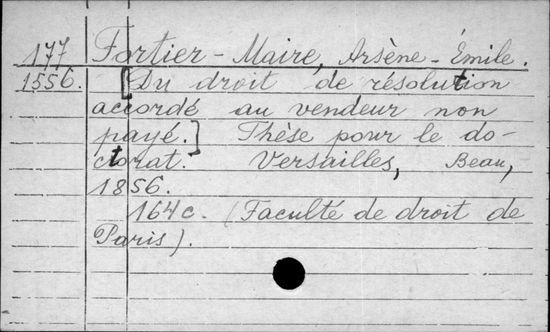 177 Fortier-Maire, Arsène-Émile.
1556. [Du droit de résolution
accordé au vendeur non
payé.] Thèse pour le do-
ctorat. Versailles, Beau,
1856.
164c. (Faculté de droit de
Paris).